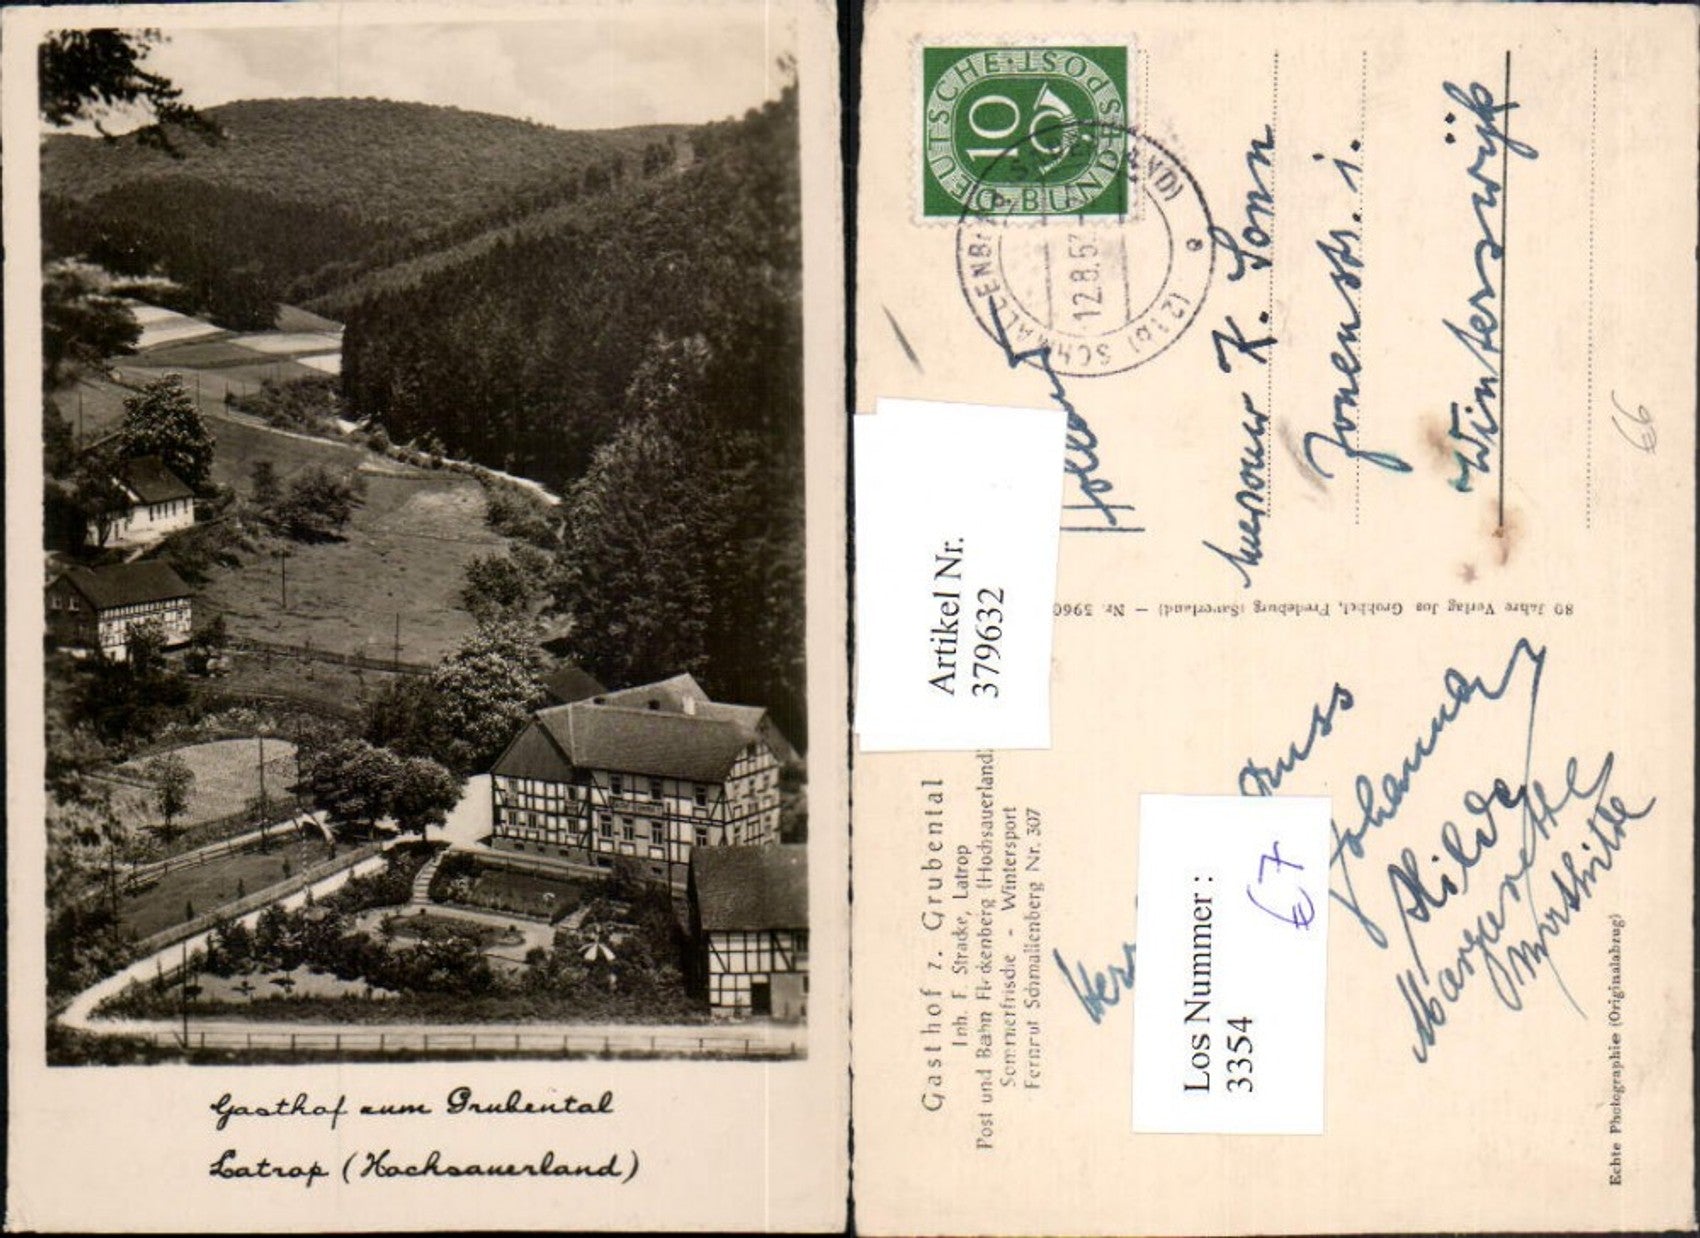 Gasthof zum Grubental
Latrop (Hochsauerland)
DEUTSCHE · POST
10
BUNDES
(21b) SCHMALLENB
12.8.53
a
Holland
K. Sonn
i.
Winterswijk
66
Artikel Nr.
379632
80 Jahre Verlag Jos Grobbel, Fredeburg (Sauerland) – Nr. 5960
Gasthof z. Grubental
Inh. F. Stracke, Latrop
Post und Bahn Fleckenberg (Hochsauerland)
Sommerfrische - Wintersport
Fernruf Schmallenberg Nr. 307
Los Nummer :
3354
€7
Johanna
Hilde
Echte Photographie (Originalabzug)